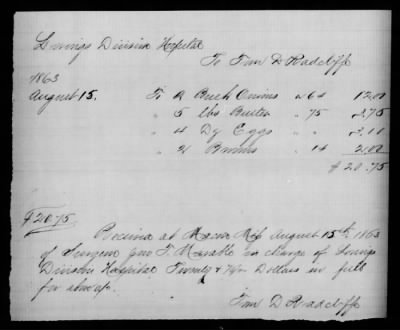 Lorings Division Hospital
To Tim D Radcliff
1863
August 15. To 2 Bush Onions 6.00 12.00
" 5 lbs Butter " 75 3.75
" 4 Dz Eggs " 3.00
" 2 Brooms " 1.00 2.00
$20.75
$20.75
Received at Macon Miss August 15th 1863
of Surgeon Jno T. Marable in charge of Lorings
Division Hospital Twenty & 75/100 Dollars in full
for above.
Tim D Radcliff